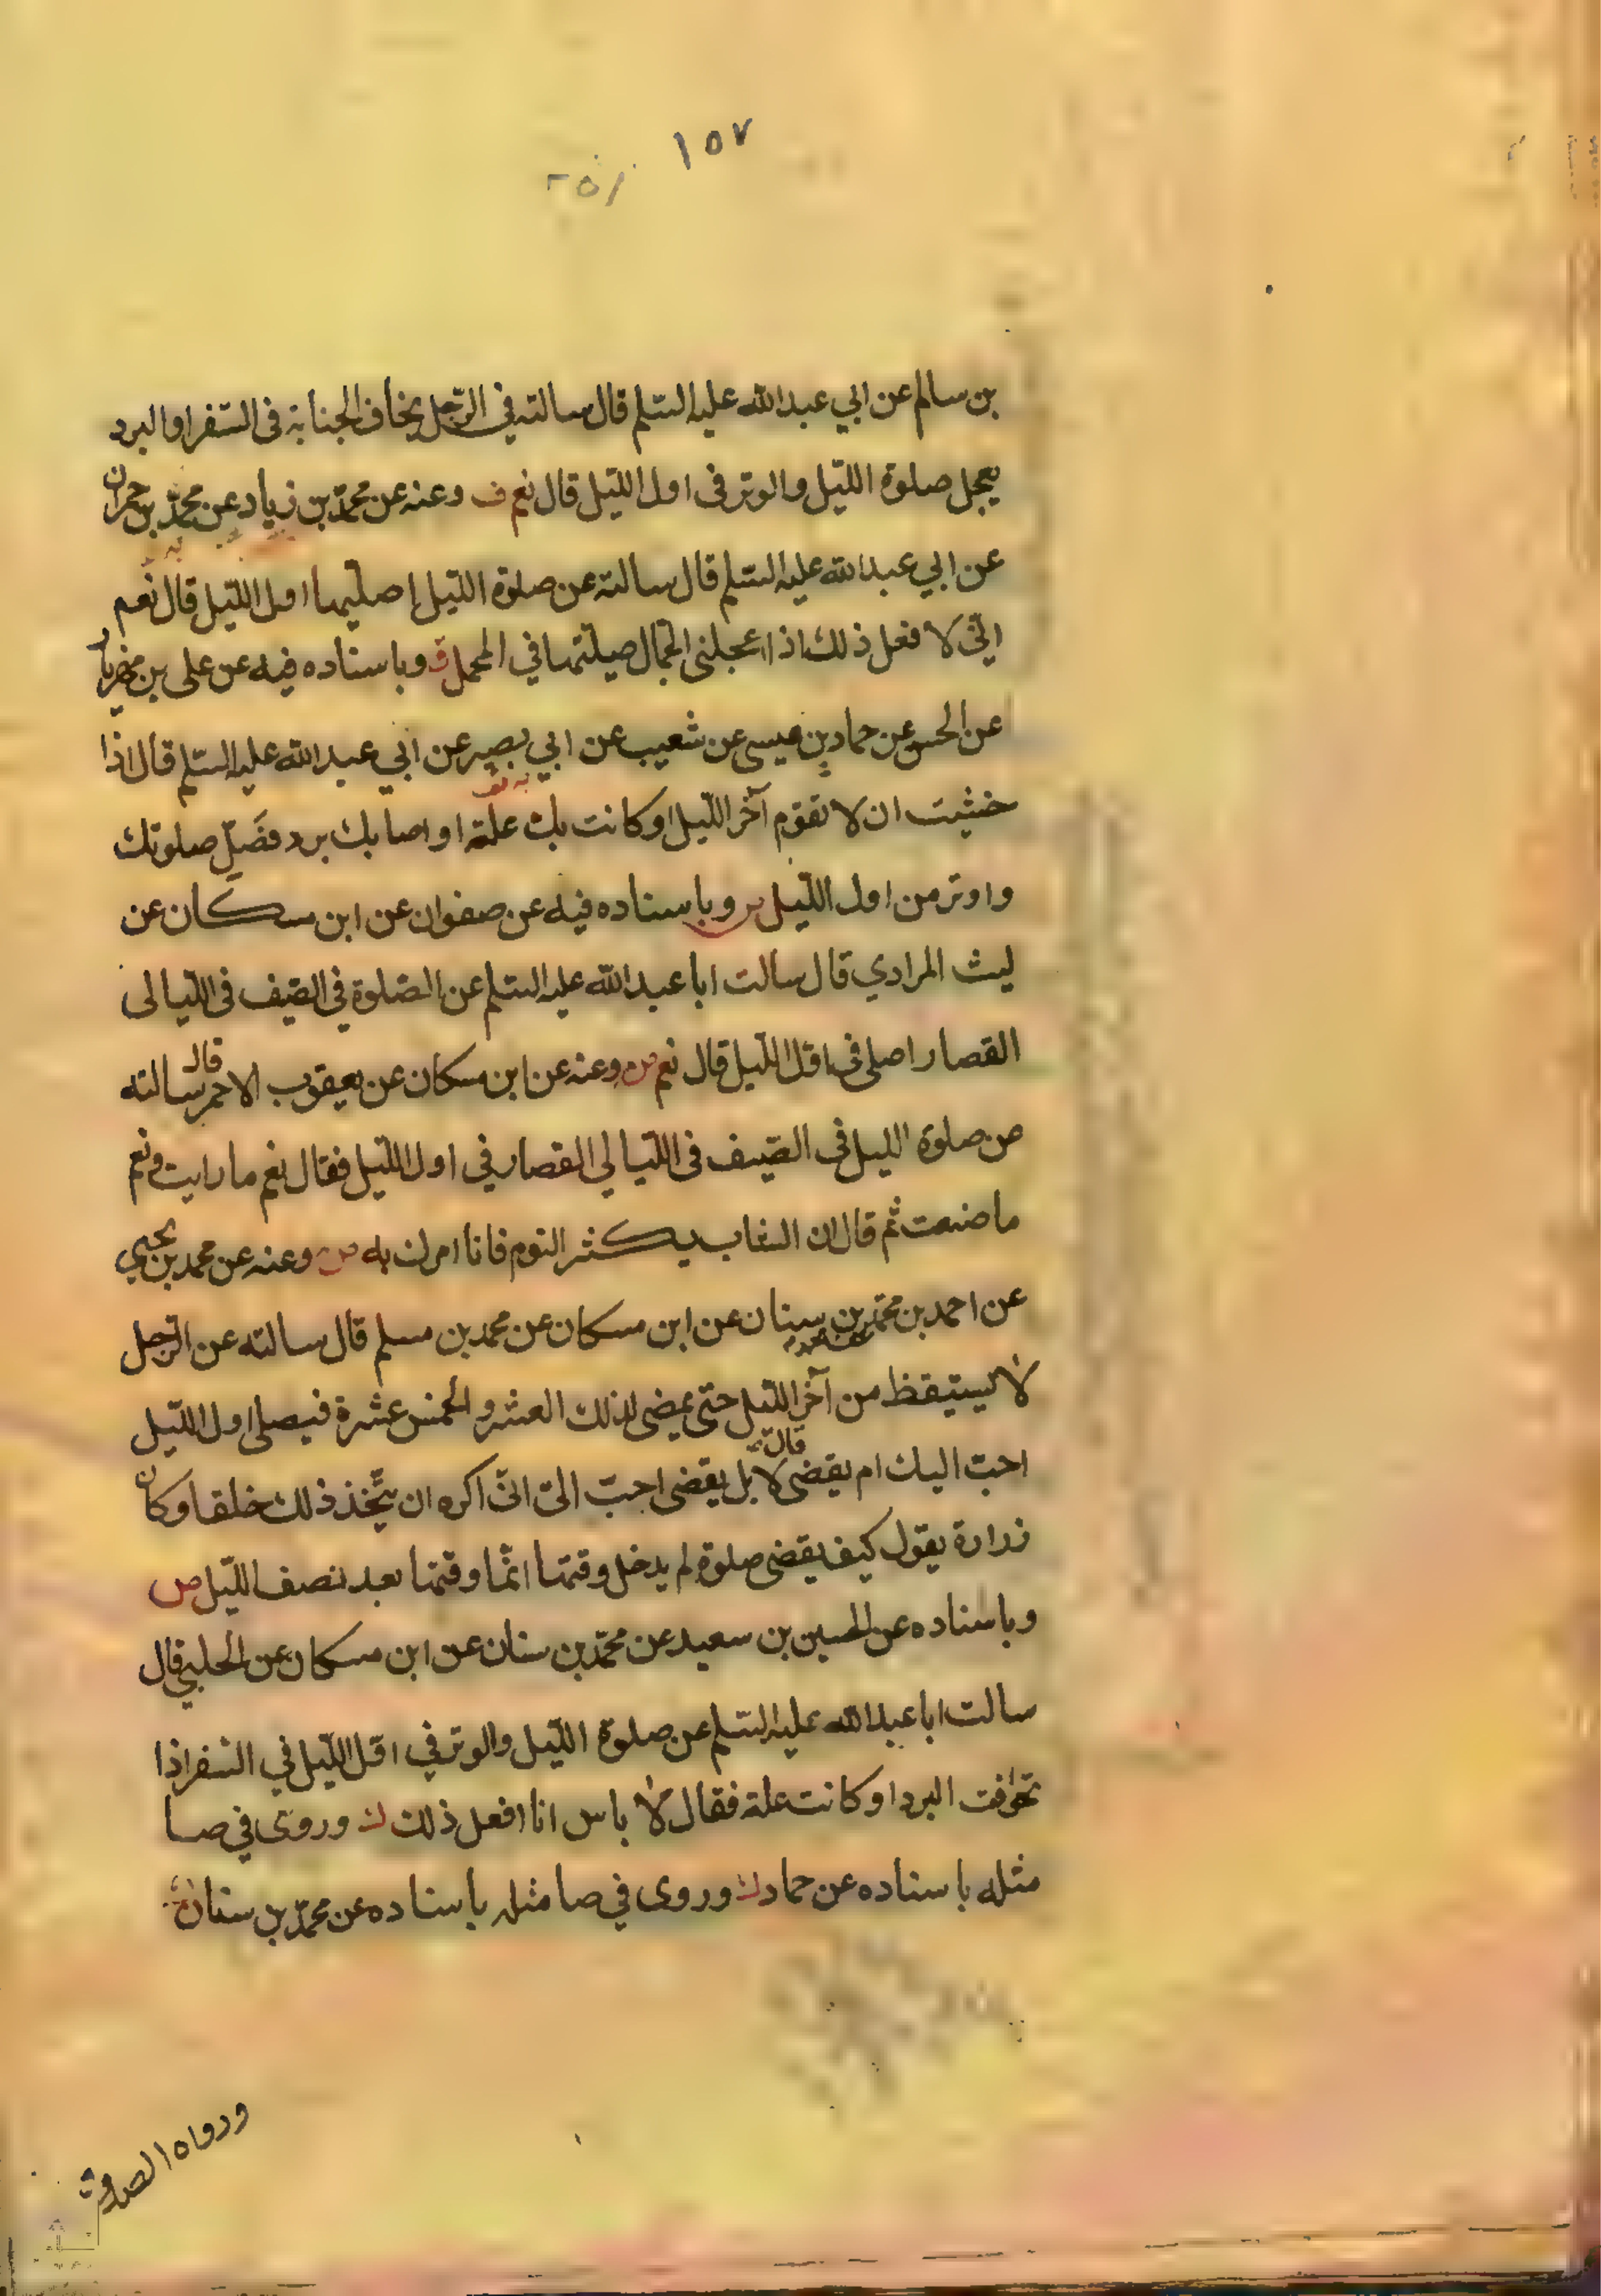 ١٥٧
بن سالم عن ابي عبدالله عليه السلم قال سالته في الرّجل يخاف الجنابة فى السّفر او البرد
يعجل صلوة اللّيل والوتر فى اول اللّيل قال نعم ف وعنه عن محمّد بن زياد عن محمّد بن حمران
عن ابي عبدالله عليه السّلم قال سالته عن صلوة اللّيل اصلّيها اول اللّيل قال نعم
انّي لا فعل ذلك اذا اعجلنى الجمّال صلّيتها في المحمل ق وباسناده فيه عن على بن مهزيار
عن الحسن عن حماد بن عيسى عن شعيب عن ابي بصير عن ابي عبدالله عليه السّلم قال اذا
خشيت ان لا تقوم آخر اللّيل او كانت بك علة او اصابك برد فصَلّ صلوتك
واوتر من اول اللّيل ر وباسناده فيه عن صفوان عن ابن مسكان عن
ليث المرادي قال سالت ابا عبدالله عليه السّلم عن الصّلوة في الصّيف فى اللّيالى
القصار اصلى فى اوّل اللّيل قال نعم ص وعنه عن ابن مسكان عن يعقوب الاحمر قال سالته
عن صلوة الليل فى الصّيف فى اللّيالي القصار في اول اللّيل فقال نعم ما رايت ونعم
ما صنعت ثم قال ان الشاب يكثر النوم فانا امرك به ص وعنه عن محمد بن يحيي
عن احمد بن محمّد بن سنان عن ابن مسكان عن محمد بن مسلم قال سالته عن الرّجل
لا يستيقظ من آخر اللّيل حتى يمضى لذلك العشر والخمس عشرة فيصلى اول اللّيل
احبّ اليك ام يقضى قال لا بل يقضى احبّ الىّ انّى اكره ان يتّخذ ذلك خلقا وكان
زرارة يقول كيف يقضى صلوة لم يدخل وقتها انّما وقتها بعد نصف اللّيل ص
وباسناده عن الحسين بن سعيد عن محمّد بن سنان عن ابن مسكان عن الحلبي قال
سالت ابا عبدالله عليه السّلم عن صلوة اللّيل والوتر في اوّل اللّيل في السّفر اذا
تخوّفت البرد او كانت علة فقال لا باس انا افعل ذلك ك وروى في صا
مثله باسناده عن حماد ك وروى في صا مثله باسناده عن محمّد بن سنان
ورواه الصدوق